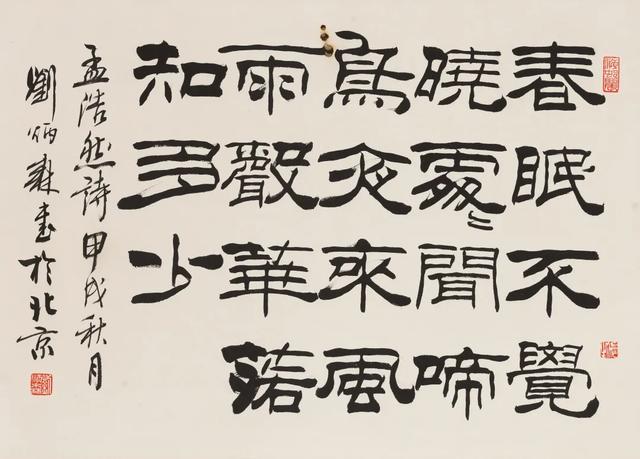 春眠不覺
曉處〻聞啼
鳥夜來風
雨聲華落
知多少
孟浩然詩甲戌秋月
劉炳森書於北京